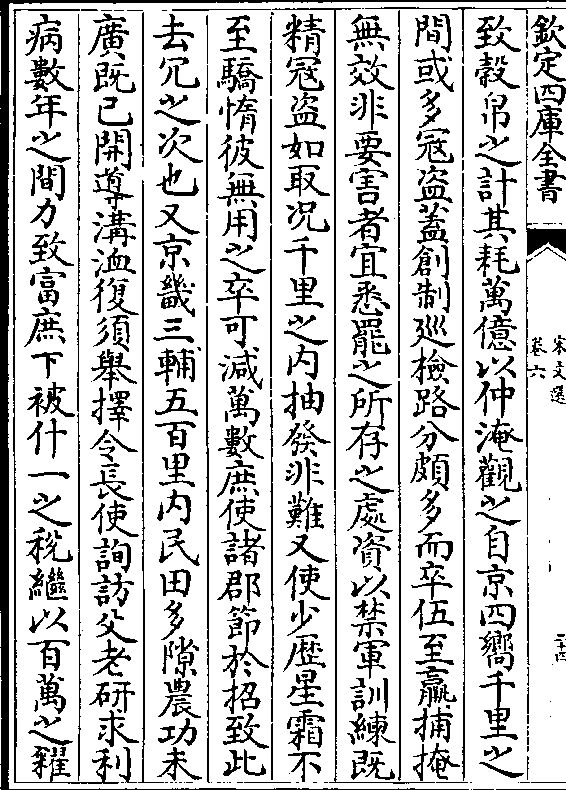 欽定四庫全書
宋文選
卷六
二十四
致穀帛之計其耗萬億以仲淹觀之自京四嚮千里之
間或多冦盜蓋創制廵檢路分頗多而卒伍至羸捕掩
無效非要害者宜悉罷之所存之處資以禁軍訓練既
精冦盜如取况千里之内抽發非難又使少歴星霜不
至驕惰彼無用之卒可減萬數庶使諸郡節於招致此
去冗之次也又京畿三輔五百里内民田多隙農功未
廣既已開導溝洫復須舉擇令長使詢訪父老研求利
病數年之間力致富庶下被什一之稅繼以百萬之糴